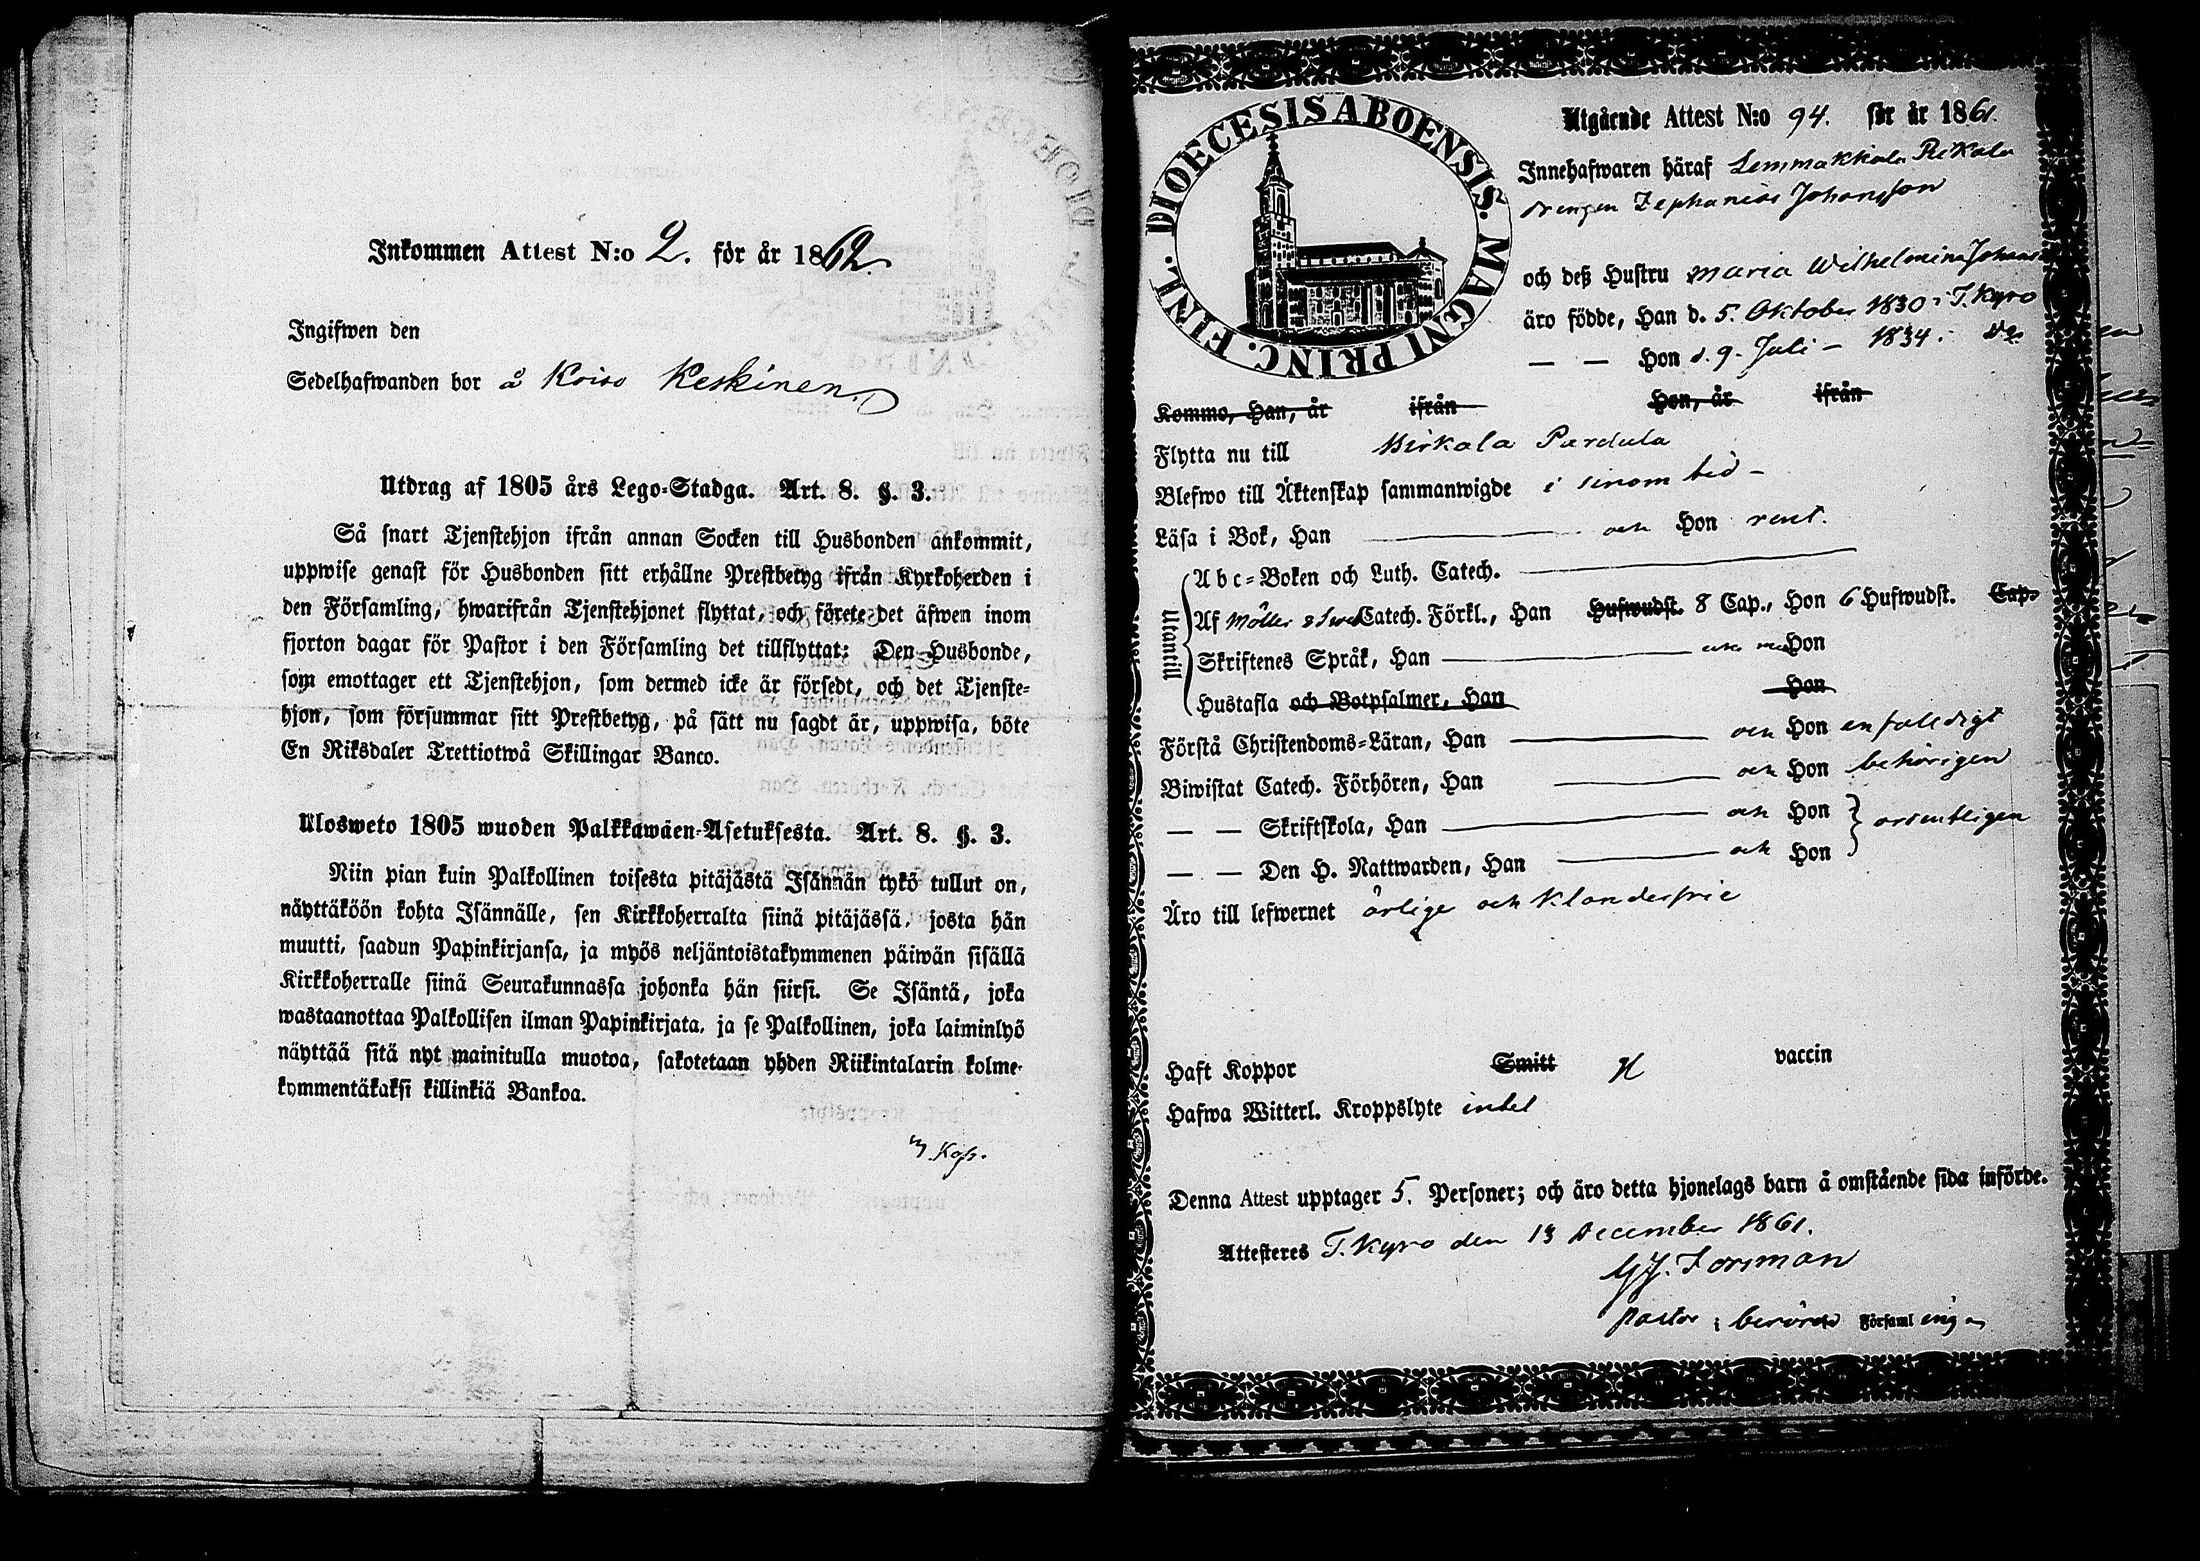 Inkommen Attest N:o 2. för år 1862.
Ingifwen den
Sedelhafwanden bor å Koiso Keskinen.
Utdrag af 1805 års Lego-Stadga. Art. 8. §. 3.
Så snart Tjenstehjon ifrån annan Socken till Husbonden ankommit,
uppwise genast för Husbonden sitt erhållne Prestbetyg ifrån Kyrkoherden i
den Församling, hwarifrån Tjenstehjonet flyttat, och förete det äfwen inom
fjorton dagar för Pastor i den Församling det tillflyttat: Den Husbonde,
som emottager ett Tjenstehjon, som dermed icke är försedt, och det Tjenste-
hjon, som försummar sitt Prestbetyg, på sätt nu sagdt är, uppwisa, böte
En Riksdaler Trettiotwå Skillingar Banco.
Ulosweto 1805 wuoden Palkkawäen-Asetuksesta. Art. 8. §. 3.
Niin pian kuin Palkollinen toisesta pitäjästä Isännän tykö tullut on,
näyttäköön kohta Isännälle, sen Kirkkoherralta siinä pitäjässä, josta hän
muutti, saadun Papinkirjansa, ja myös neljäntoistakymmenen päiwän sisällä
Kirkkoherralle siinä Seurakunnassa johonka hän siirsi. Se Isäntä, joka
wastaanottaa Palkollisen ilman Papinkirjata, ja se Palkollinen, joka laiminlyö
näyttää sitä nyt mainitulla muotoa, sakotetaan yhden Riikintalarin kolme-
kymmentäkaksi killinkiä Bankoa.
3 Kop.
DIOECESIS ABOENSIS. MAGNI PRINC. FINL.
Utgående Attest N:o 94. för år 1861.
Innehafwaren häraf Lemmakkala Rekola
drengen Zephanias Johansson
och deß Hustru Maria Wilhelmina Johans
äro födde, Han d. 5. Oktober 1830 i T. Kyro
— — Hon d. 9. Juli – 1834. i do
Kommo, Han, år ifrån Hon, år ifrån
Flytta nu till Birkala Pardula
Blefwo till Äktenskap sammanwigde i sinom tid –
Läsa i Bok, Han och Hon rent.
Utantill
Abc-Boken och Luth. Catech.
Af Möller & Catech. Förkl., Han Hufwudst. 8 Cap., Hon 6 Hufwudst. Cap.
Skriftenes Språk, Han Hon
Hustafla och Botpsalmer, Han Hon
Förstå Christendoms-Läran, Han och Hon enfaldigt
Biwistat Catech. Förhören, Han och Hon behörigen
— — Skriftskola, Han och Hon
— — Den H. Nattwarden, Han och Hon ordentligen
Äro till lefwernet ärlige och klanderfrie
Haft Koppor Smitt vaccin
Hafwa Witterl. Kroppslyte intet
Denna Attest upptager 5. Personer; och äro detta hjonelags barn å omstående sida införde.
Attesteres T. Kyro den 13 December 1861.
Forsman
Pastor i berörde Församlingen